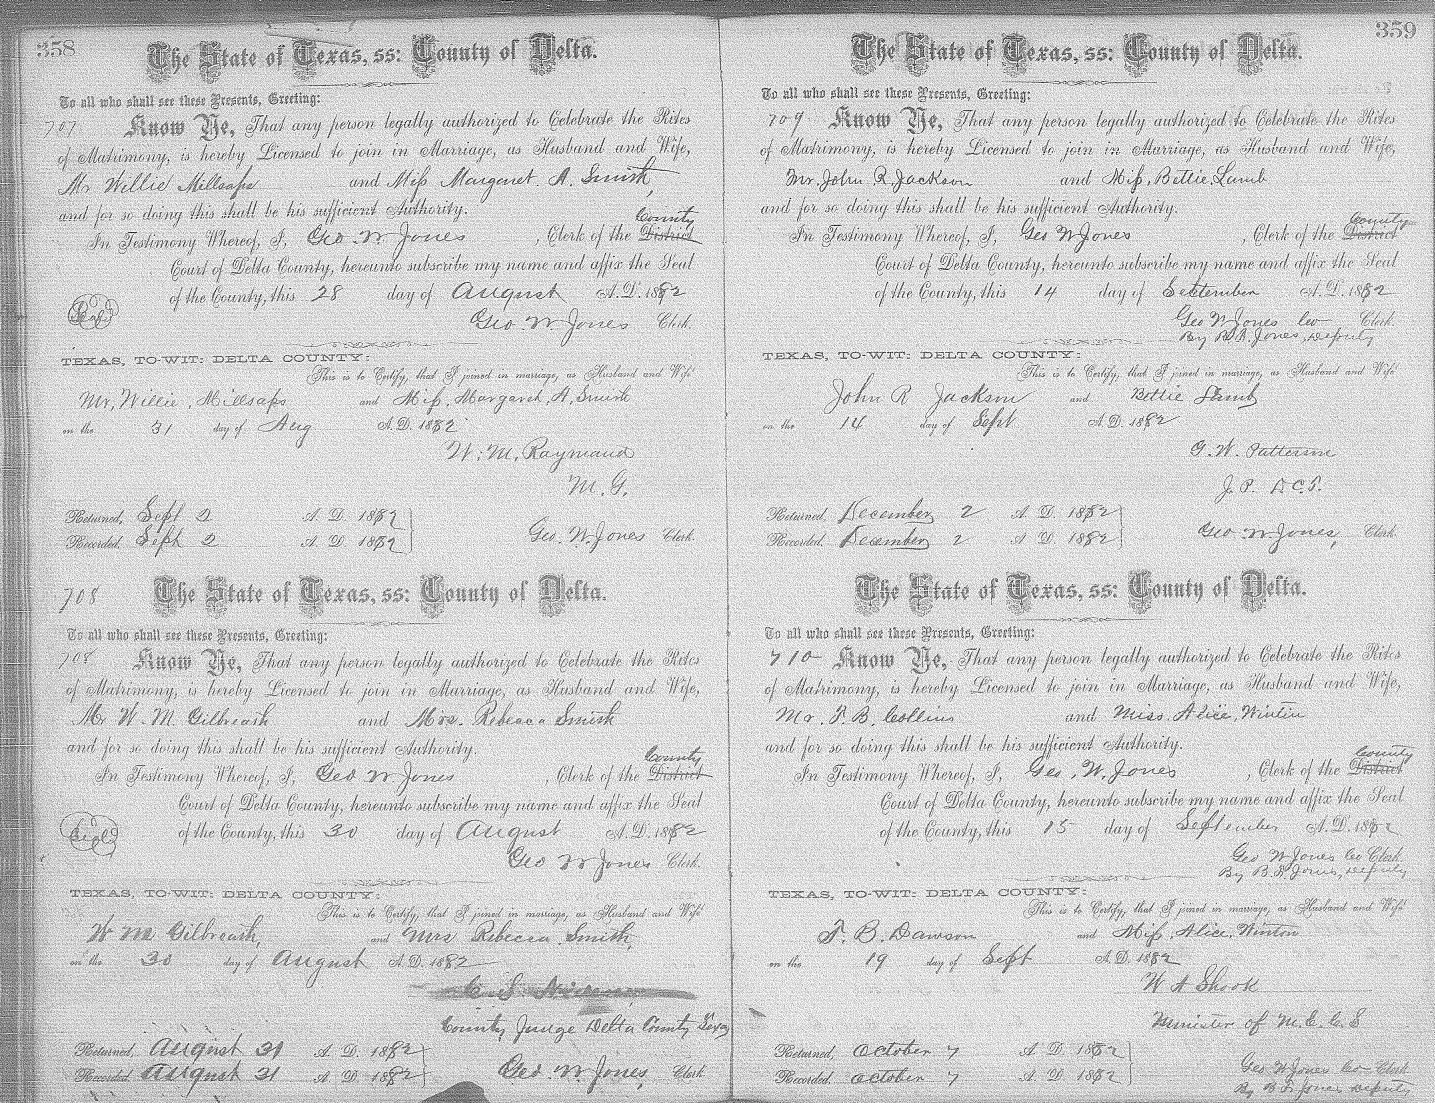 358
The State of Texas, ss: County of Delta.
To all who shall see these Presents, Greeting:
707 Know Ye, That any person legally authorized to Celebrate the Rites
of Matrimony, is hereby Licensed to join in Marriage, as Husband and Wife,
Mr Willie Millsaps and Miss Margaret. A. Smith,
and for so doing this shall be his sufficient Authority.
County
In Testimony Whereof, I, Geo. W Jones, Clerk of the District
Court of Delta County, hereunto subscribe my name and affix the Seal
of the County, this 28 day of August A.D. 1882
Seal
Geo. W Jones Clerk.
TEXAS, TO-WIT: DELTA COUNTY:
This is to Certify, that I joined in marriage, as Husband and Wife
Mr, Willie, Millsaps and Miss, Margaret, A, Smith
on the 31 day of Aug A.D. 1882
W. M. Raymond
M. G.
Returned, Sept 2 A. D. 1882
Recorded, Sept 2 A. D. 1882
Geo. W. Jones Clerk.
708 The State of Texas, ss: County of Delta.
To all who shall see these Presents, Greeting:
708 Know Ye, That any person legally authorized to Celebrate the Rites
of Matrimony, is hereby Licensed to join in Marriage, as Husband and Wife,
Mr W. M Gilbreath and Mrs. Rebecca Smith
and for so doing this shall be his sufficient Authority.
County
In Testimony Whereof, I, Geo W Jones, Clerk of the District
Court of Delta County, hereunto subscribe my name and affix the Seal
of the County, this 30 day of August A.D. 1882
Seal
Geo W Jones Clerk.
TEXAS, TO-WIT: DELTA COUNTY:
This is to Certify, that I joined in marriage, as Husband and Wife
W M Gilbreath, and Mrs Rebecca. Smith,
on the 30 day of August A.D. 1882
C S
County Judge Delta County Texas
Returned, August 31 A. D. 1882
Recorded August 31 A. D. 1882
Geo. W. Jones, Clerk
359
The State of Texas, ss: County of Delta.
To all who shall see these Presents, Greeting:
709 Know Ye, That any person legally authorized to Celebrate the Rites
of Matrimony, is hereby Licensed to join in Marriage, as Husband and Wife,
Mr. John R. Jackson and Miss, Bettie. Lamb
and for so doing this shall be his sufficient Authority.
County
In Testimony Whereof, I, Geo W Jones, Clerk of the District
Court of Delta County, hereunto subscribe my name and affix the Seal
of the County, this 14 day of September A.D. 1882
Geo W Jones Co Clerk.
By B. F. Jones, Deputy
TEXAS, TO-WIT: DELTA COUNTY:
This is to Certify, that I joined in marriage, as Husband and Wife
John R Jackson and Bettie Lamb
on the 14 day of Sept A.D. 1882
G. W. Patterson
J. P. D C. T.
Returned, December 2 A. D. 1882
Recorded, December 2 A. D. 1882
Geo. W. Jones, Clerk
The State of Texas, ss: County of Delta.
To all who shall see these Presents, Greeting:
710 Know Ye, That any person legally authorized to Celebrate the Rites
of Matrimony, is hereby Licensed to join in Marriage, as Husband and Wife,
Mr. B. Collins and Miss. Alice, Winton
and for so doing this shall be his sufficient Authority.
County
In Testimony Whereof, I, Geo, W. Jones, Clerk of the District
Court of Delta County, hereunto subscribe my name and affix the Seal
of the County, this 15 day of September A.D. 1882
Geo W Jones Co Clerk.
By B. F. Jones, Deputy
TEXAS, TO-WIT: DELTA COUNTY:
This is to Certify, that I joined in marriage, as Husband and Wife
B. Dawson and Miss, Alice, Winton
on the 19 day of Sept A.D. 1882
W A Shook
Minister of M. E. C. S
Returned, October 7 A. D. 1882
Recorded, October 7 A. D. 1882
Geo W Jones Co Clerk
By B F Jones Deputy